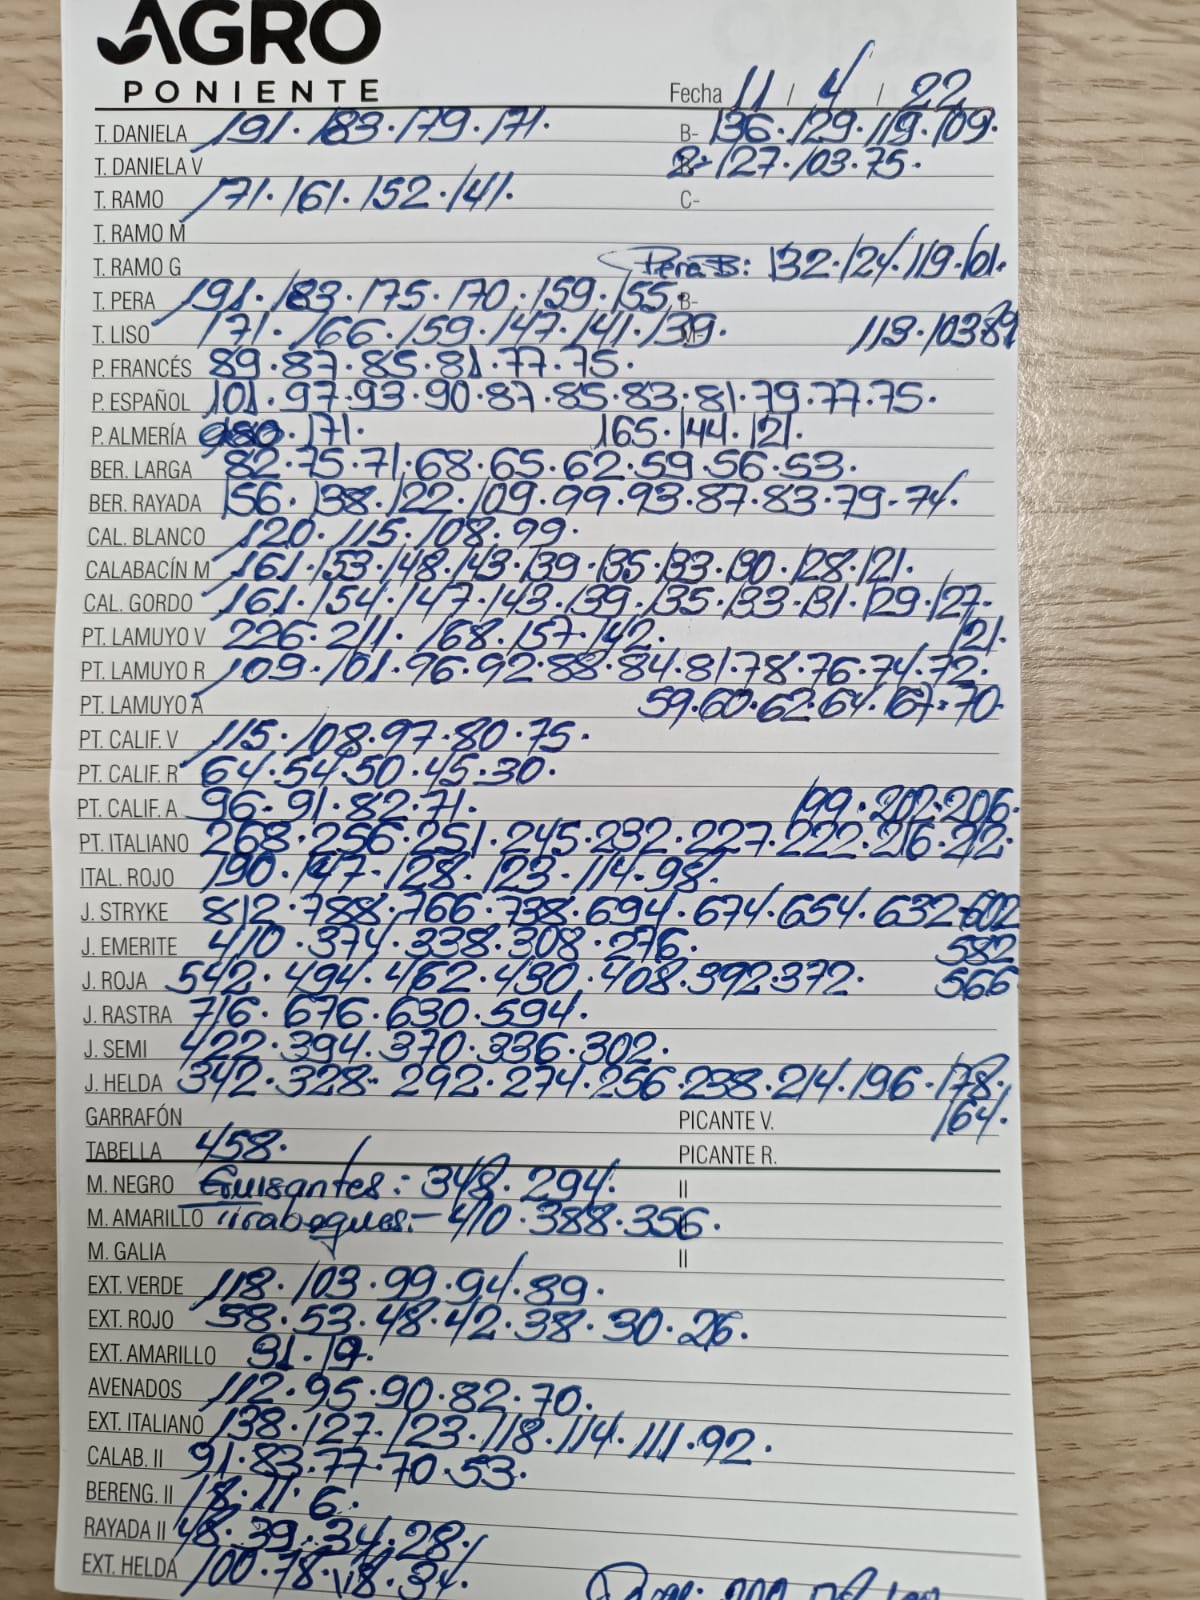 AGRO
PONIENTE
Fecha 11 / 4 / 22
T. DANIELA 191. 183. 179. 171. B- 136. 129. 119. 109.
T. DANIELA V 127. 103. 75.
T. RAMO 171. 161. 152. 141. C-
T. RAMO M
T. RAMO G Pera B: 132. 124. 119. 101.
T. PERA 191. 183. 175. 170. 159. 155. B-
T. LISO 171. 166. 159. 147. 141. 139. 113. 103 89
P. FRANCÉS 89. 87. 85. 81. 77. 75.
P. ESPAÑOL 101. 97. 93. 90. 87. 85. 83. 81. 79. 77. 75.
P. ALMERÍA 171. 165. 144. 121.
BER. LARGA 82. 75. 71. 68. 65. 62. 59. 56. 53.
BER. RAYADA 156. 138. 122. 109. 99. 93. 87. 83. 79. 74.
CAL. BLANCO 120. 115. 108. 99.
CALABACÍN M 161. 153. 148. 143. 139. 135. 133. 128. 121.
CAL. GORDO 161. 154. 147. 143. 139. 135. 133. 131. 129. 127.
PT. LAMUYO V 226. 211. 168. 157. 142. 121.
PT. LAMUYO R 109. 101. 96. 92. 88. 84. 81. 78. 76. 74. 72.
PT. LAMUYO A 59. 60. 62. 64. 67. 70.
PT. CALIF. V 115. 108. 97. 80. 75.
PT. CALIF. R 64. 54. 50. 45. 30.
PT. CALIF. A 96. 91. 82. 71. 199. 202. 206.
PT. ITALIANO 268. 256. 251. 245. 232. 227. 222. 216. 212.
ITAL. ROJO 190. 147. 128. 123. 114. 98.
J. STRYKE 812. 788. 766. 738. 694. 674. 654. 632. 602
J. EMERITE 410. 374. 338. 308. 276. 582
J. ROJA 542. 494. 462. 430. 408. 392. 372. 566
J. RASTRA 716. 676. 630. 594.
J. SEMI 422. 394. 370. 336. 302.
J. HELDA 342. 328. 292. 274. 256. 238. 214. 196. 178.
GARRAFÓN PICANTE V. 164.
TABELLA 458. PICANTE R.
M. NEGRO Guisantes: 348. 294. II
M. AMARILLO Tirabeques:- 410. 388. 356.
M. GALIA II
EXT. VERDE 118. 103. 99. 94. 89.
EXT. ROJO 58. 53. 48. 42. 38. 30. 26.
EXT. AMARILLO 31. 19.
AVENADOS 112. 95. 90. 82. 70.
EXT. ITALIANO 138. 127. 123. 118. 114. 111. 92.
CALAB. II 91. 83. 77. 70. 53.
BERENG. II 18. 11. 6.
RAYADA II 48. 39. 34. 28.
EXT. HELDA 100. 78. 34.